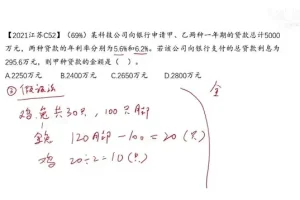 【2021江苏C52】(69%)某科技公司向银行申请甲、乙两种一年期的贷款总计5000
万元,两种贷款的年利率分别为5.6%和6.2%。若该公司向银行支付的总贷款利息为
295.6万元,则甲种贷款的金额是( )。
A.2250万元 B.2400万元 C.2650万元 D.2800万元
② 假设法
鸡兔共30只,100只脚
全兔 120只脚-100=20(只)
鸡 20÷2=10(只)
全